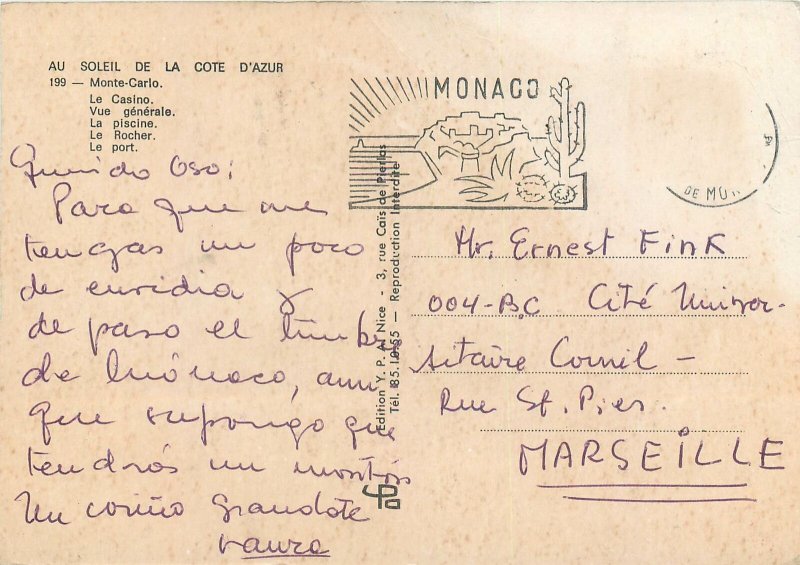 AU SOLEIL DE LA COTE D'AZUR
199 — Monte-Carlo.
Le Casino.
Vue générale.
La piscine.
Le Rocher.
Le port.
MONACO
DE MO
Querido Oso:
Para que me
tengas un poco
de envidia y
de paso el timbre
de Mónaco, aun
que supongo que
tendrás un montón
Un cariño grandote
Laura
Edition Y. P. A. Nice - 3, rue Caïs de Pierlas
Tél. 85.10.65 — Reproduction Interdite
Mr. Ernest Fink
004-B.C Cité Univer-
sitaire Cornil -
Rue St. Pier.
MARSEILLE